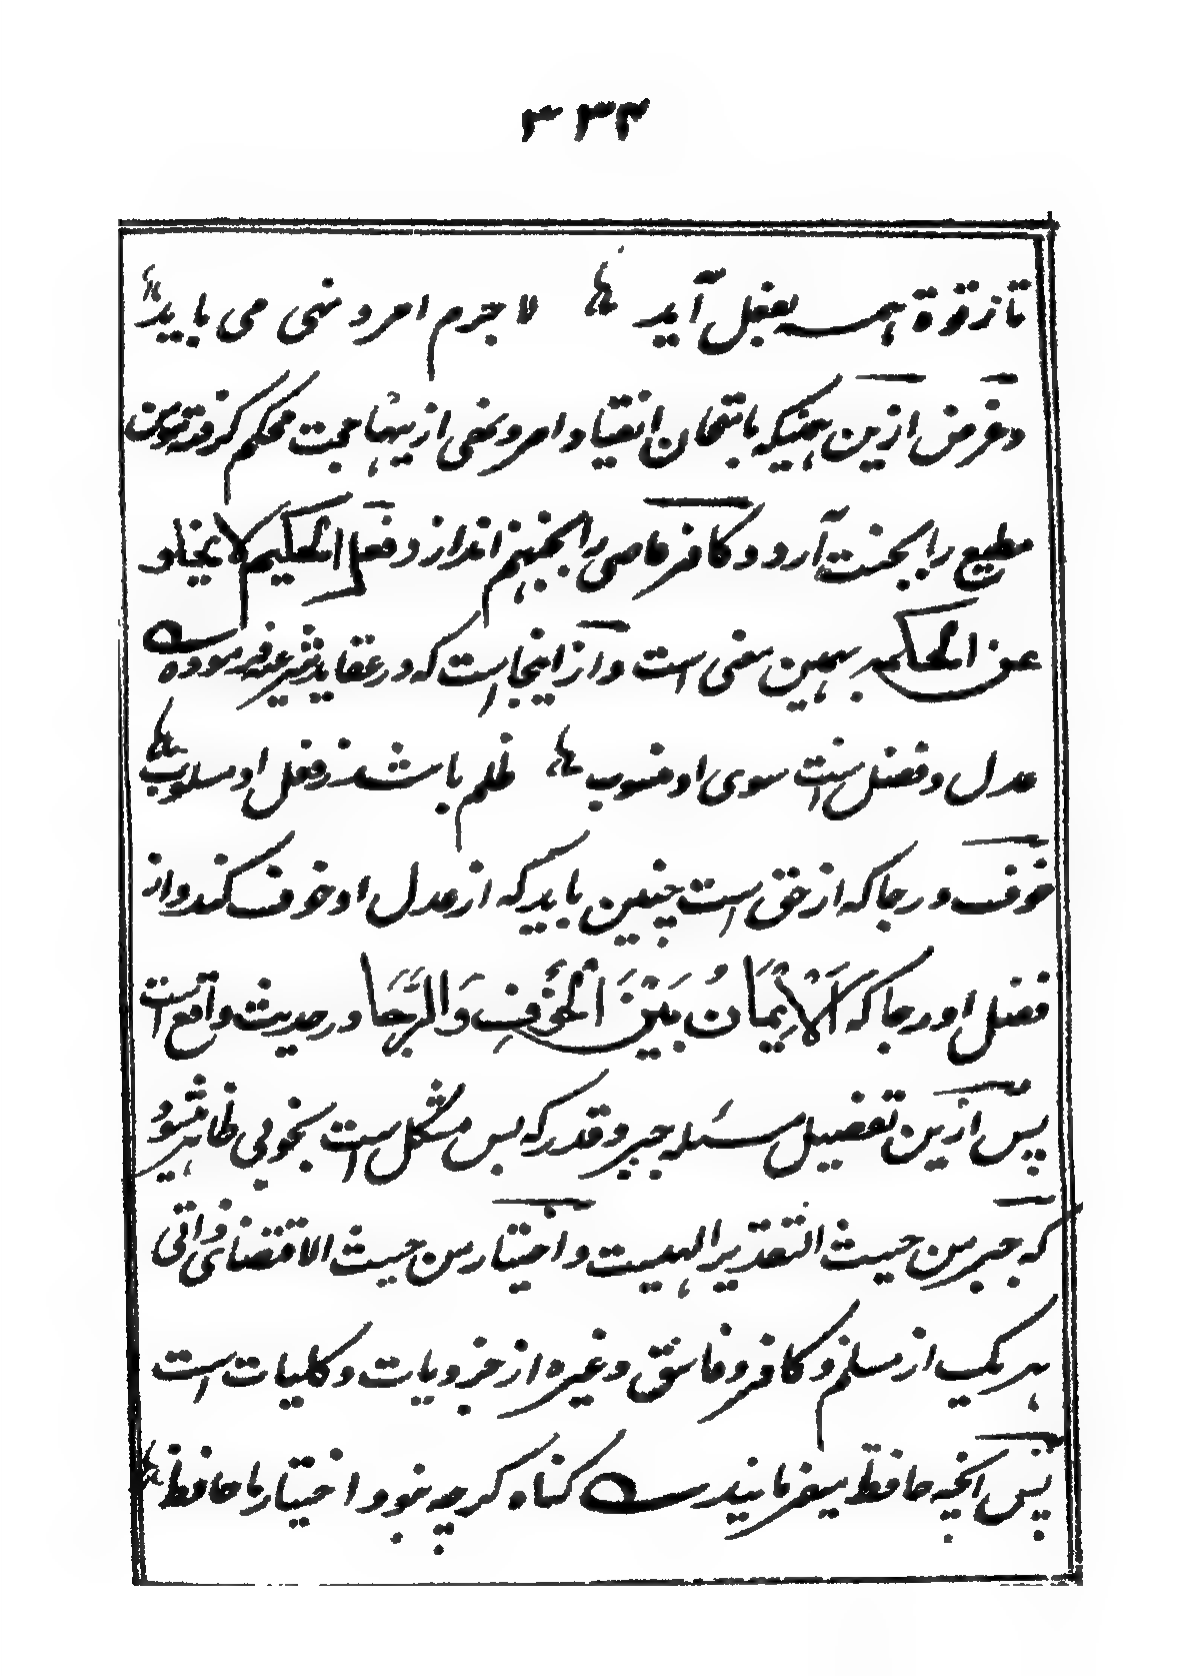 ۳۳۴
تا ز قوة همه بفعل آید لا جرم امر و نهی می باید
و غرض ازین همینکه بامتحان انقیاد امر و نهی از بنها حجت محکم گرفته مومن
مطیع را بجنت آرد و کافر عاصی را بجهنم اندازد و فعل الحکیم لا یخلو
عن الحکمه بهمین معنی است و از اینجاست که در عقاید شرعیه فرموده
عدل و فضل ست سوی او منسوب ظلم باشد ز فعل او مسلوب
خوف و رجا که از حق است چنین باید که از عدل او خوف کند و از
فضل او رجا که اَلْاِیْمَانُ بَیْنَ الْخَوْفِ وَالرَّجَا در حدیث واقع است
پس ازین تفضیل مسئله جبر و قدر که بس مشکل است بخوبی ظاهر میشود
که جبر من حیث التقدیر الهیست و اختیار من حیث الاقتضای ذاتی
هر یک از مسلم و کافر و فاسق و غیره از جزویات و کلیات است
پس آنچه حافظ میفرمایند گناه گرچه نبود اختیار ما حافظ